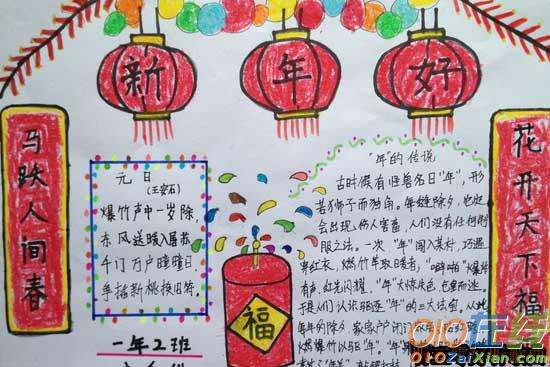 新年好
马跃人间春
花开天下福
元日
(王安石)
爆竹声中一岁除
东风送暖入屠苏
千门万户曈曈日
新桃换旧符
福
一年2班
"年"的传说
古时候有怪兽名曰"年",形
若狮子而独角。年终除夕,它
会出现伤人害畜,人们没有任何制
服之法。一次"年"闯入某村,巧遇
穿红衣,燃竹竿取暖者,"噼啪"爆
有声,红光闪耀,"年"大惊失色,
于是人们认识驱逐"年"的三大法宝,从此
每年的除夕 家家户户
燃爆竹以 "年"。"年"
在线
oioZaiXian.com